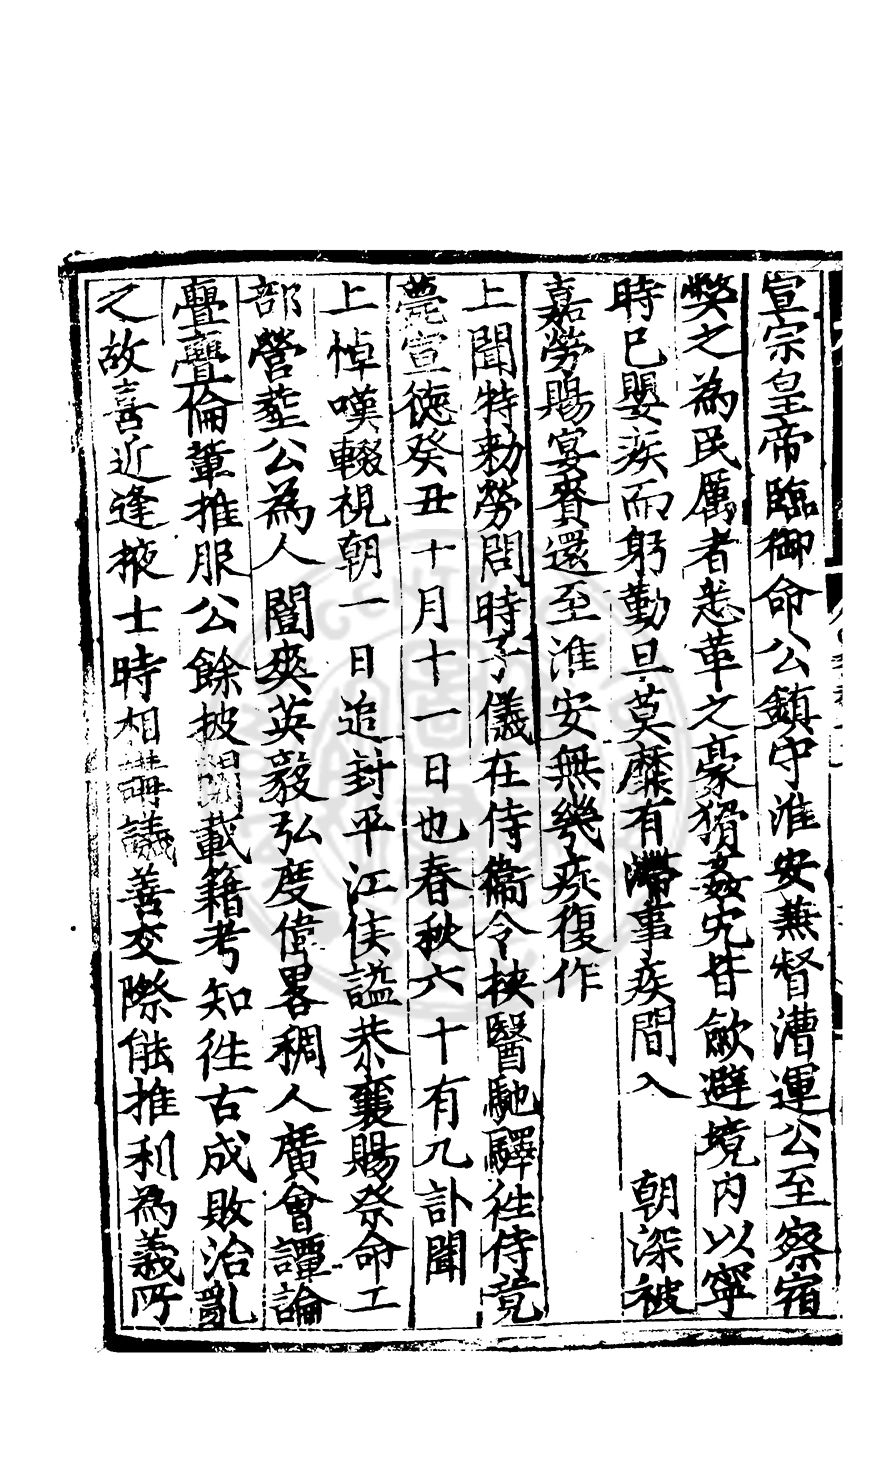 宣宗皇帝臨御命公鎮守淮安兼督漕運公至察宿
弊之為民厲者悉革之豪猾姦宄皆歛避境内以寧
時已嬰疾而躬勤旦莫靡有滯事疾間入　朝深被
嘉勞賜宴賚還至淮安無幾疾復作
上聞特勑勞問時子儀在侍衞令挾醫馳驛徃侍竟
薨宣德癸丑十月十一日也春秋六十有九訃聞
上悼嘆輟視朝一日追封平江侯謚恭襄賜祭命工
部營塟公為人闓爽英毅弘度偉畧稠人廣會譚論
亹亹倫輩推服公餘披閱載籍考知徃古成敗治亂
之故喜近逢掖士時相講議善交際能推利為義所